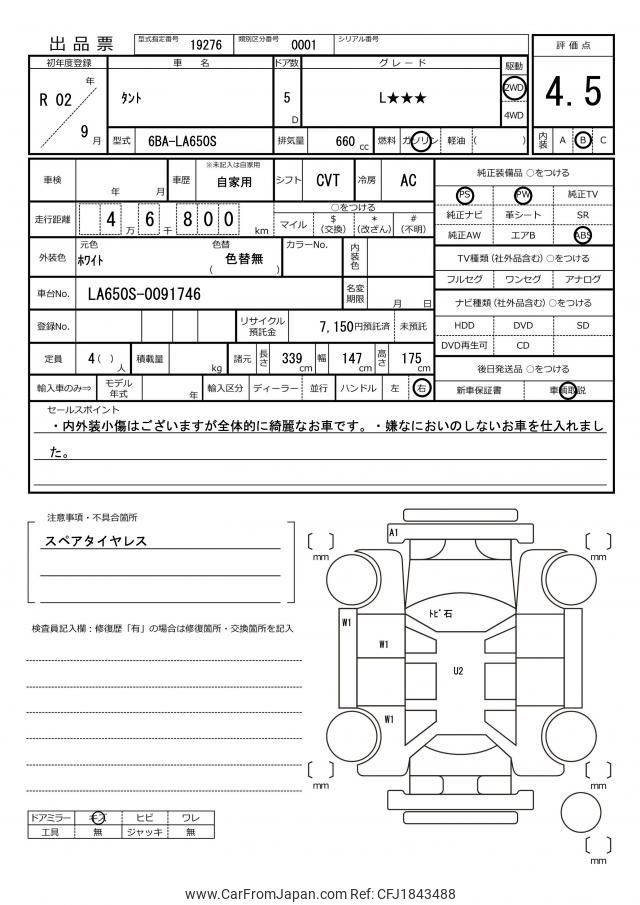 出品票
型式指定番号 19276 類別区分番号 0001 シリアル番号
評価点
初年度登録 車名 ドア数 グレード 駆動
R 02 年 9 月
ﾀﾝﾄ 5 D L★★★ 2WD 4WD
4.5
型式 6BA-LA650S 排気量 660 cc 燃料 ガソリン 軽油 ( )
内装 A B C
車検 年 月 車歴 ※未記入は自家用 自家用 シフト CVT 冷房 AC
走行距離 4 6 8 0 0 万 千 km
○をつける
マイル $(交換) *(改ざん) #(不明)
外装色 元色 ﾎﾜｲﾄ 色替 ( 色替無 ) カラーNo. 内装色
車台No. LA650S-0091746 名変期限 月 日
登録No. リサイクル預託金 7,150円預託済 未預託
定員 4( )人 積載量 kg 諸元 長さ 339 cm 幅 147 cm 高さ 175 cm
輸入車のみ⇒ モデル年式 年 輸入区分 ディーラー 並行 ハンドル 左 右
純正装備品 ○をつける
PS PW 純正TV
純正ナビ 革シート SR
純正AW エアB ABS
TV種類(社外品含む) ○をつける
フルセグ ワンセグ アナログ
ナビ種類(社外品含む) ○をつける
HDD DVD SD
DVD再生可 CD
後日発送品 ○をつける
新車保証書 車輌取説
セールスポイント
・内外装小傷はございますが全体的に綺麗なお車です。・嫌なにおいのしないお車を仕入れまし
た。
注意事項・不具合箇所
スペアタイヤレス
検査員記入欄：修復歴「有」の場合は修復箇所・交換箇所を記入
A1
mm
mm
ﾄﾋﾞ石
W1
W1
U2
W1
mm
mm
mm
ドアミラー キズ ヒビ ワレ
工具 無 ジャッキ 無
www.CarFromJapan.com Ref: CFJ1843488